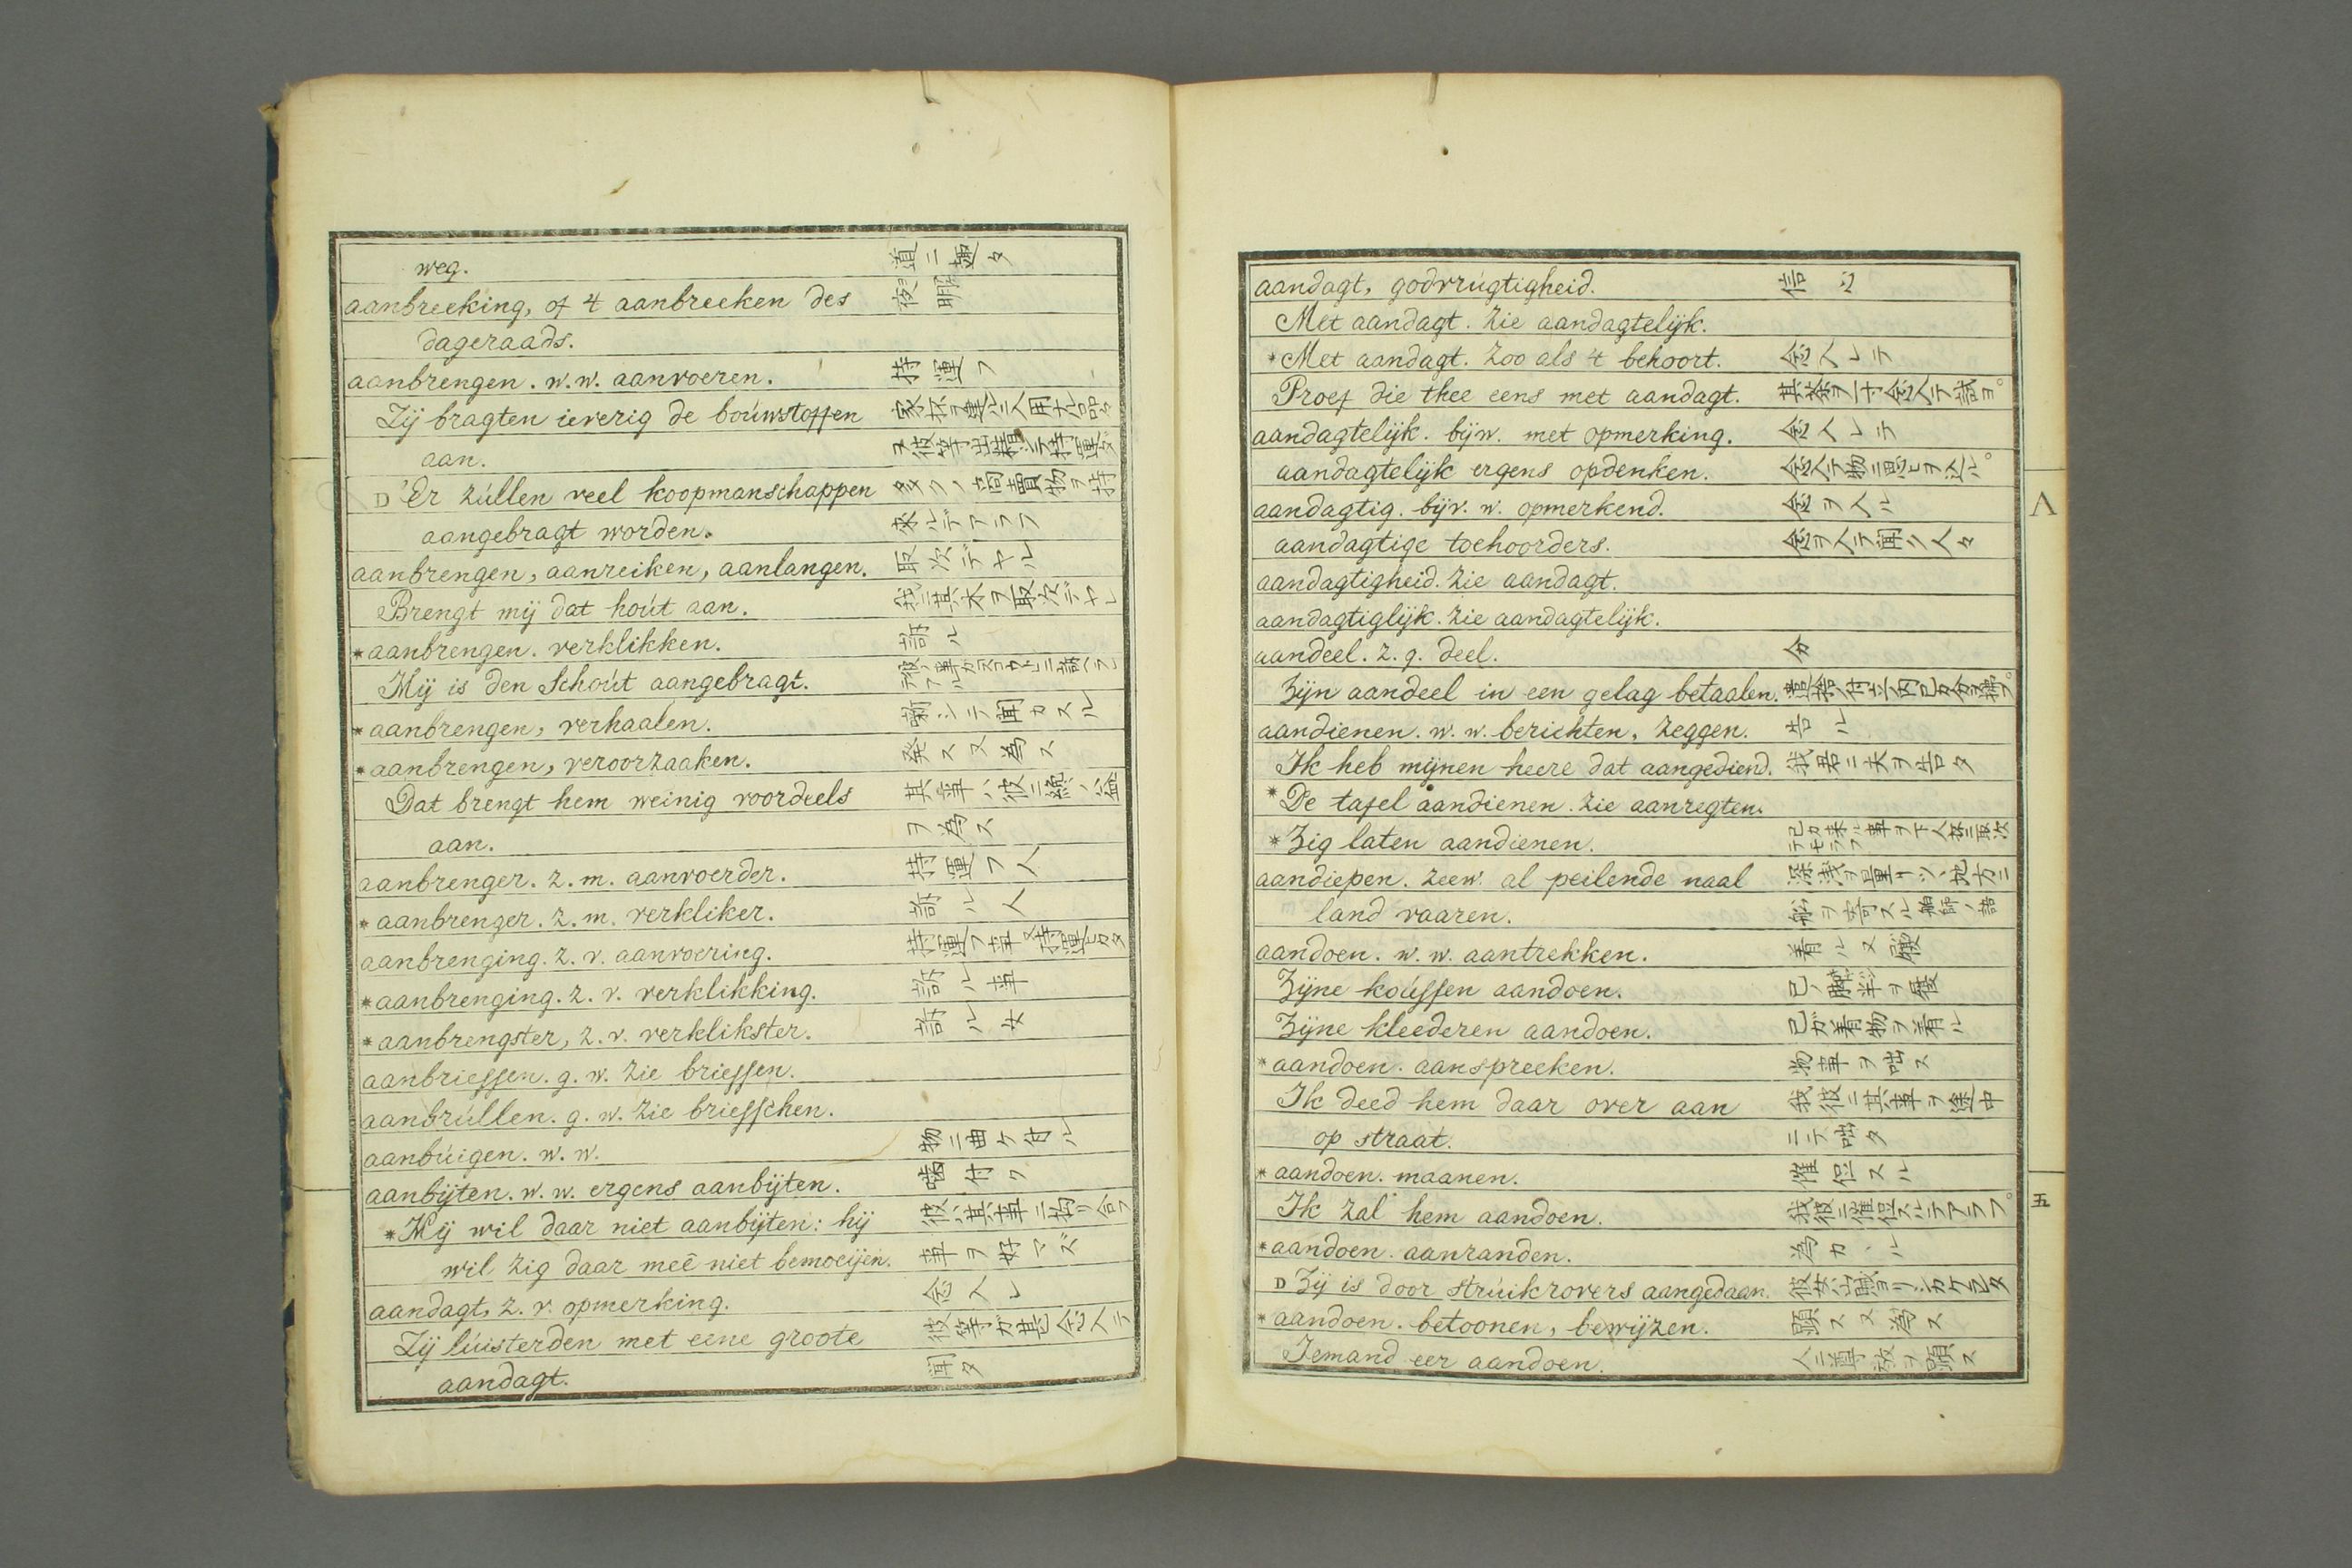 weg. 道ニ趣タ
aanbreeking, of 't aanbreeken des 夜明
dageraads.
aanbrengen. w.w. aanvoeren. 持運フ
Zij bragten ieverig de boúwstoffen
aan.
D 'Er zúllen veel koopmanschappen 多クノ商賣物ヲ持
aangebragt worden. 来ルデアラフ
aanbrengen, aanreiken, aanlangen. 取次デヤル
Brengt mij dat hoút aan. 我ニ其木ヲ取次デヤレ
*aanbrengen. verklikken. 訴ル
Hij is den Schoút aangebragt.
*aanbrengen, verhaalen. 噺シテ聞カスル
*aanbrengen, veroorzaaken. 発ス又為ス
Dat brengt hem weinig voordeels 其事ハ彼ニ纔ノ益
aan. ヲ為ス
aanbrenger. z. m. aanvoerder. 持運フ人
*aanbrenger. z. m. verkliker. 訴ル人
aanbrenging. z. v. aanvoering. 持運フ事又持運ヒカタ
*aanbrenging. z. v. verklikking. 訴ル事
*aanbrengster, z. v. verklikster. 訴ル女
aanbriessen. g. w. zie briessen.
aanbrúllen. g. w. zie briesschen.
aanbúigen. w. w. 物ニ曲ケ付ル
aanbijten. w. w. ergens aanbijten. 噛付ク
*Hij wil daar niet aanbijten: hij 彼ハ其事ニ拘リ合フ
wil zig daar meê niet bemoeijen. 事ヲ好マズ
aandagt, z. v. opmerking. 念入レ
Zij lúisterden met eene groote 彼等ガ甚念入テ
aandagt. 聞タ
aandagt, godvrúgtigheid. 信心
Met aandagt. zie aandagtelijk.
*Met aandagt. zoo als 't behoort. 念入レテ
Proef die thee eens met aandagt. 其茶ヲ一寸念入テ試ヨ。
aandagtelijk. bijw. met opmerking. 念入レテ
aandagtelijk ergens opdenken. 念入テ物ニ思ヒヲ込ル。
aandagtig. bijv. w. opmerkend. 念ヲ入ル
aandagtige toehoorders. 念ヲ入テ聞ク人々
aandagtigheid. zie aandagt.
aandagtiglijk. zie aandagtelijk.
aandeel. z. g. deel. 分
Zijn aandeel in een gelag betaalen.
aandienen. w. w. berichten, zeggen. 告ル
Ik heb mijnen heere dat aangediend. 我君ニ夫ヲ告タ
*De tafel aandienen. zie aanregten.
*Zig laten aandienen. 己カ来ル事ヲ下人抔ニ取次テモラフ
aandiepen. zeew. al peilende naal 深浅ヲ量リツヽ地方ニ
land vaaren. 舩ヲ寄スル舶師ノ語
aandoen. w. w. aantrekken. 着ル又履
Zijne koússen aandoen. 己ノ脚半ヲ履
Zijne kleederen aandoen. 己ガ着物ヲ着ル
*aandoen. aanspreeken. 物事ヲ咄ス
Ik deed hem daar over aan 我彼ニ其事ヲ途中
op straat. ニテ咄タ
*aandoen. maanen. 催促スル
Ik zal hem aandoen. 我彼ニ催促スルデアラフ。
*aandoen. aanranden. 為カヽル
D Zij is door strúikrovers aangedaan. 彼女ハ山賊ヨリシカケラレタ
*aandoen. betoonen, bewijzen. 顕ス又為ス
Iemand eer aandoen. 人ニ尊敬ヲ顕ス
Λ
五